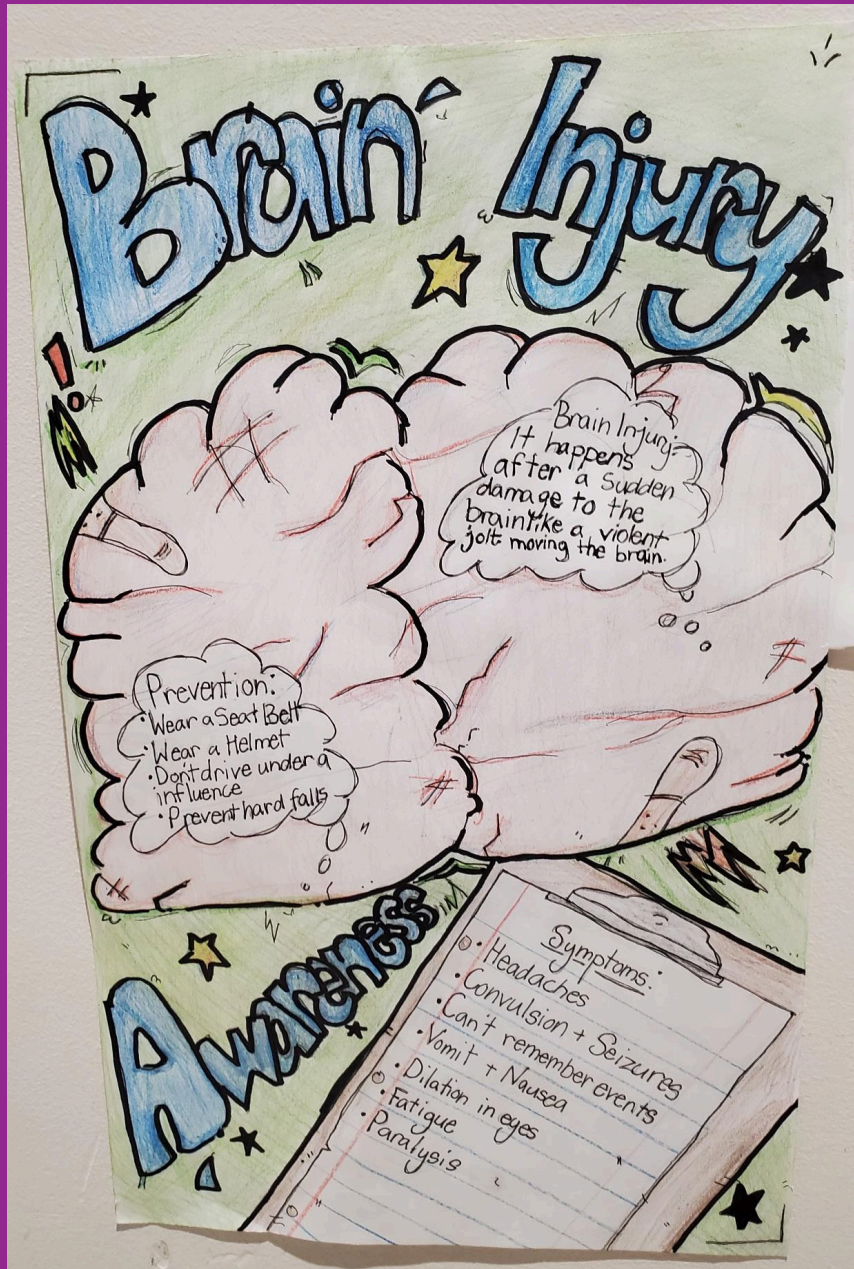 Brain Injury
Brain Injury:
It happens
after a Sudden
damage to the
brain like a violent
jolt moving the brain.
Prevention:
• Wear a Seat Belt
• Wear a Helmet
• Don't drive under a
influence
• Prevent hard falls
Awareness
Symptoms:
• Headaches
• Convulsion + Seizures
• Can't remember events
• Vomit + Nausea
• Dilation in eyes
• Fatigue
• Paralysis